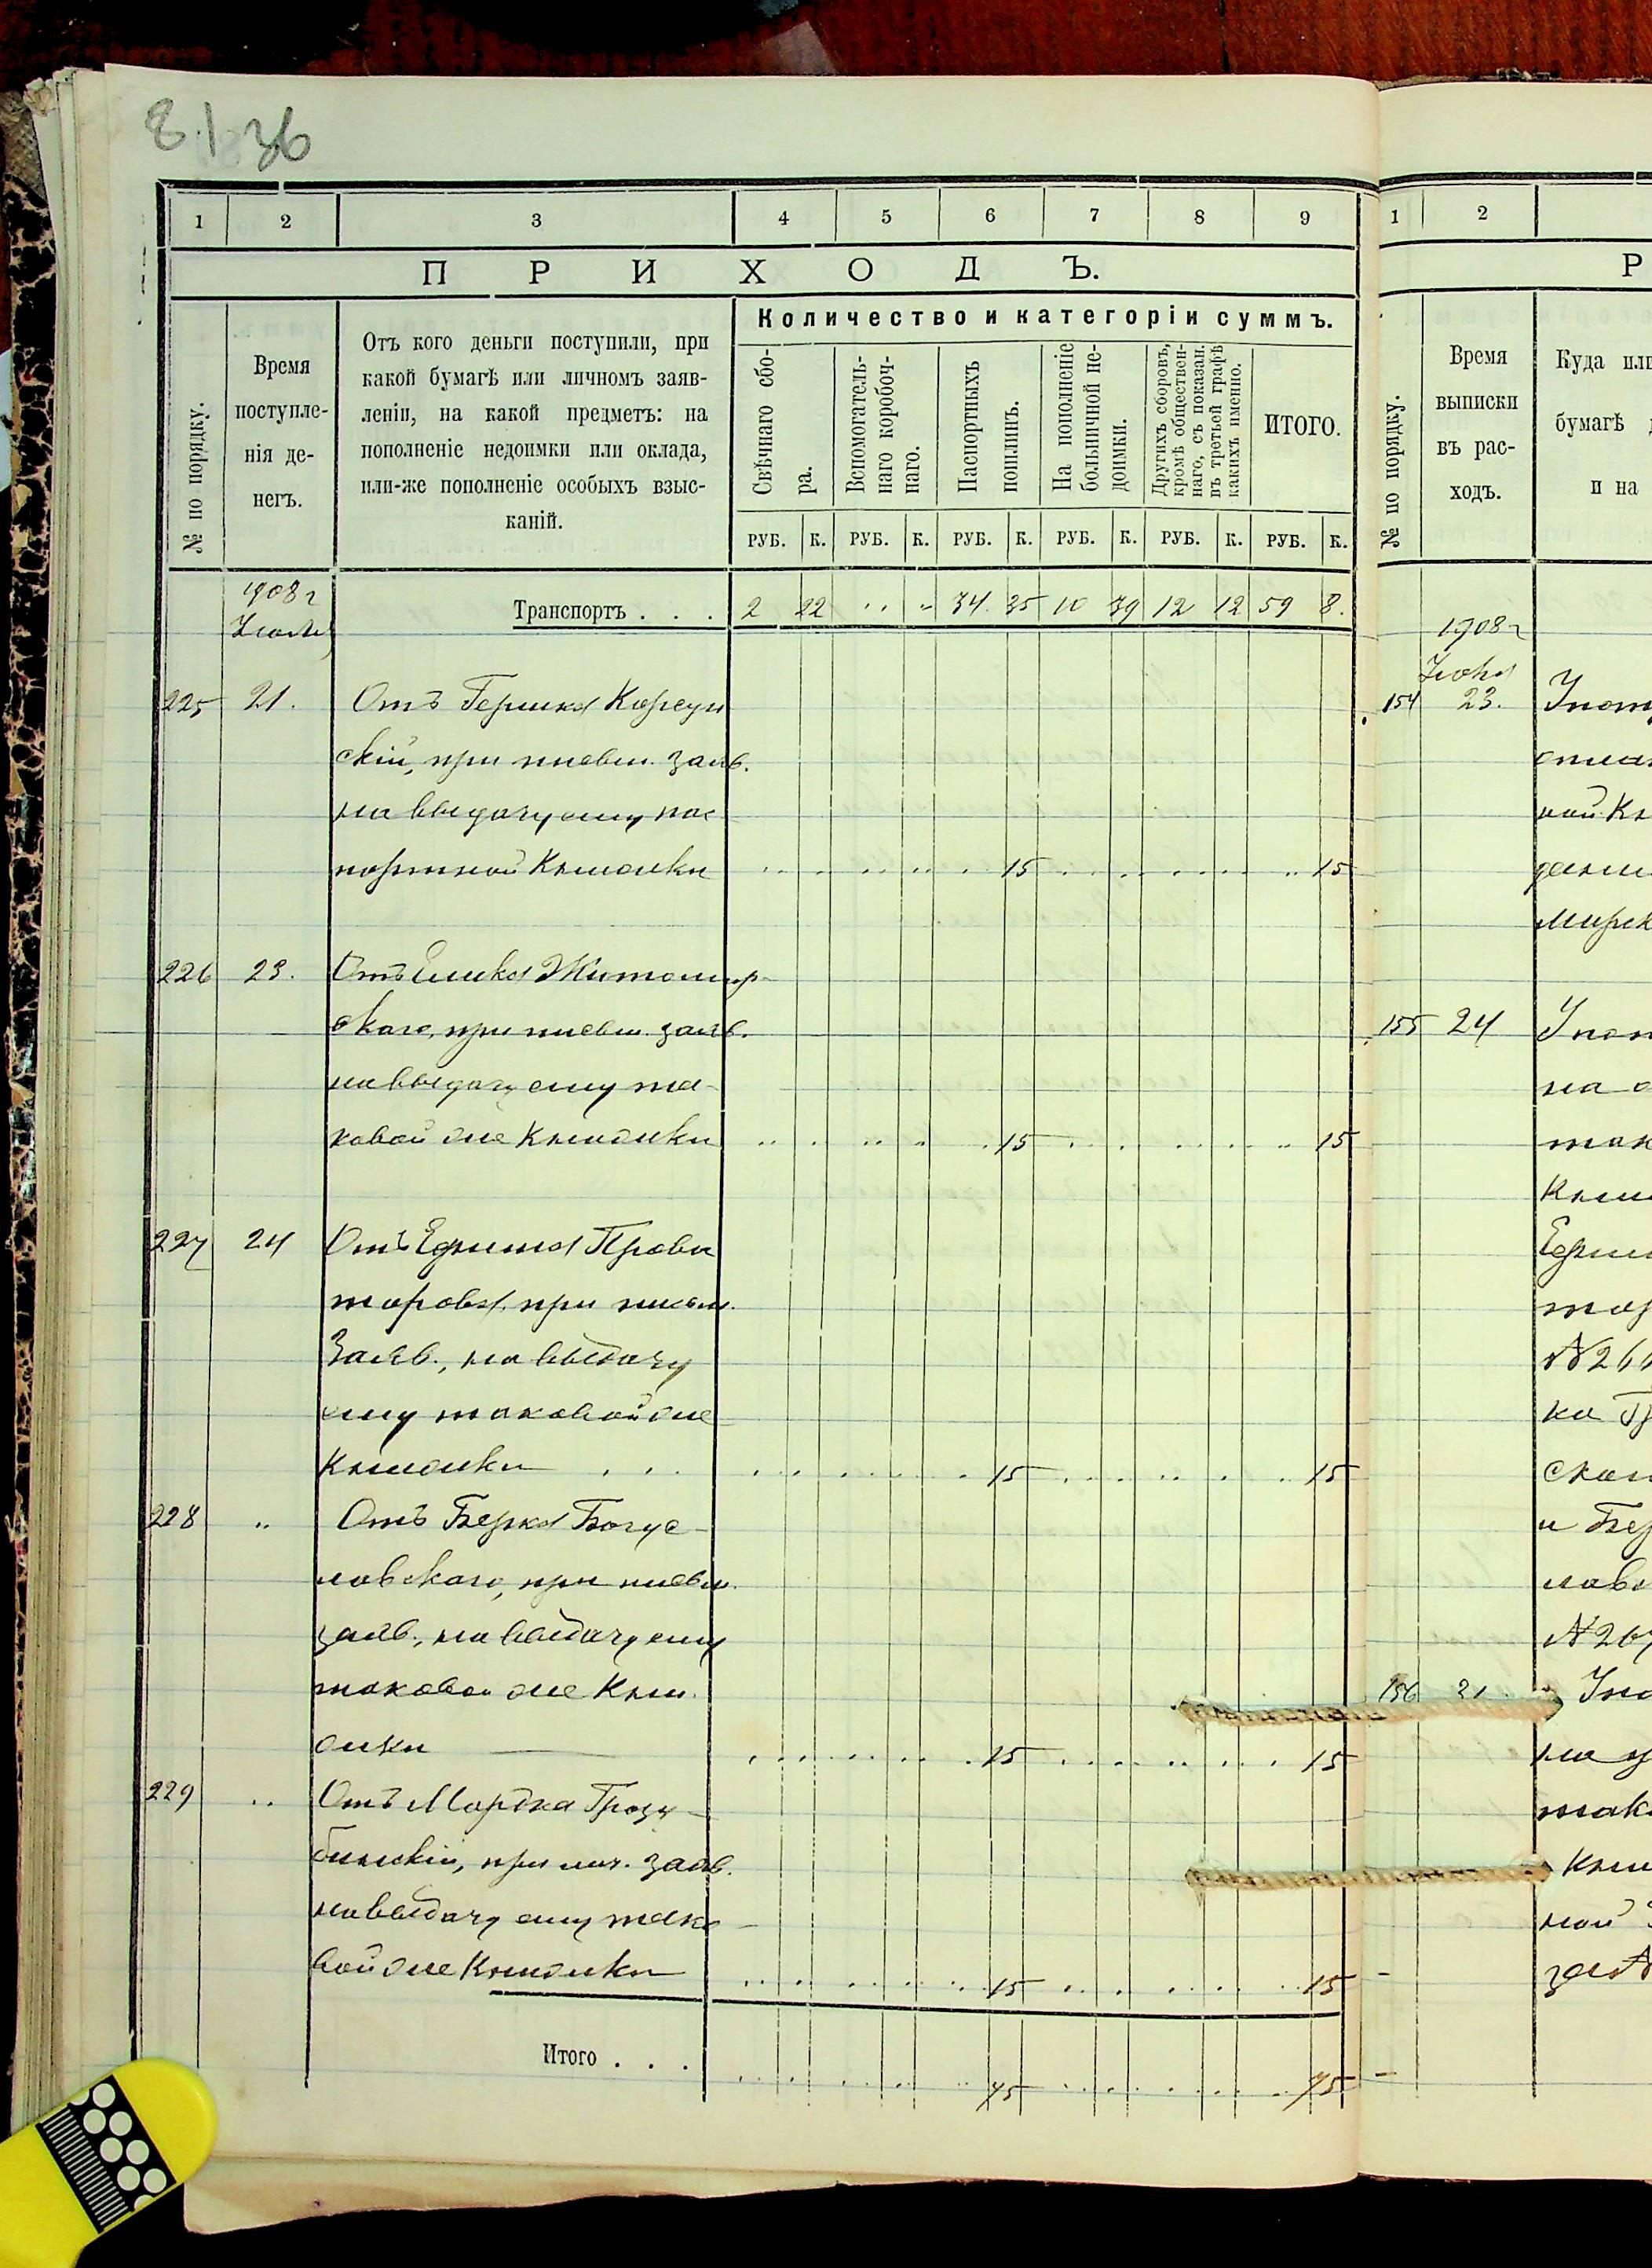 8.1 36
1 2 3 4 5 6 7 8 9
ПРИХОДЪ.
№ по порядку.
Время
поступле-
нія де-
негъ.
Отъ кого деньги поступили, при
какой бумагѣ или личномъ заяв-
леніи, на какой предметъ: на
пополненіе недоимки или оклада,
или-же пополненіе особыхъ взыс-
каній.
Количество и категоріи суммъ.
Свѣчнаго сбо-
ра.
Вспомогатель-
наго коробоч-
наго.
Паспортныхъ
пошлинъ.
На пополненіе
больничной не-
доимки.
Другихъ сборовъ,
кромѣ обществен-
наго, съ показан.
въ третьей графѣ
какихъ именно.
ИТОГО.
РУБ. К. РУБ. К. РУБ. К. РУБ. К. РУБ. К. РУБ. К.
1908 г
Іюля
Транспортъ . . . 2 22 " " 34. 35 10 39 12 12 59 8.
225 21. Отъ Гершка Корсун
скій, при письм. заяв.
на выдачу ему пас
портной книжки 15 15
226 23. Отъ Житомир-
скаго, при письм. заяв.
на выдачу ему та-
ковой же книжки 15 15
227 24 Отъ Прови
торова, при письм.
заяв., на выдачу
ему таковой же
книжки . . . 15 15
228 " Отъ Берка Богус-
лавскаго, при письм.
заяв., на выдачу ему
таковой же книж
жки 15 15
229 " Отъ Мордка Грозу-
бинскій, при лич. заяв.
на выдачу ему тако-
вой же книжки 15 15
Итого . . . 75 75
1 2
Р
№ по порядку.
Время
выписки
въ рас-
ходъ.
Куда или
бумагѣ
и на
1908 г
Іюля
154 23.
ной Кн
155 24
на
так
Книж
тор
ска
и Бер
лавс
156 21
на
так
Книж
ной